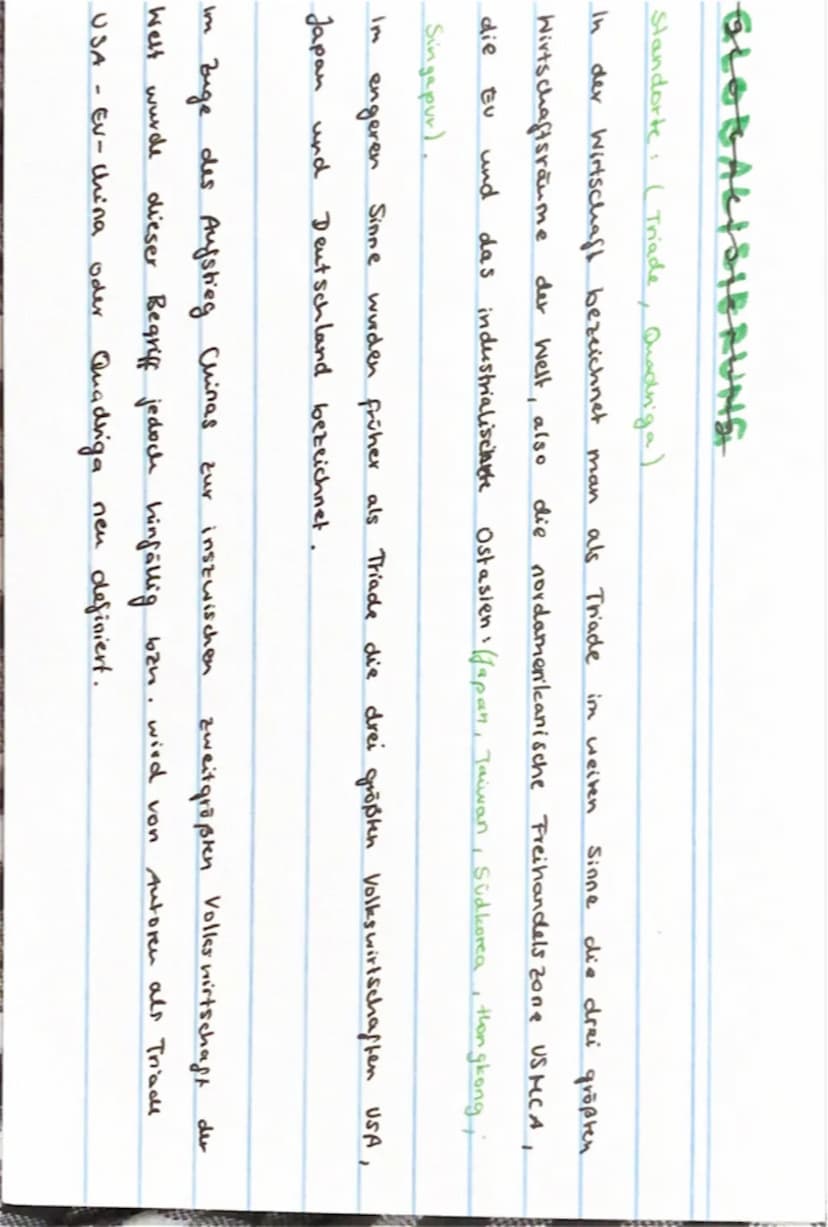 GLOBALISIERUNG
Standorte: (Triade, Quadriga)
In der Wirtschaft bezeichnet man als Triade im weiten Sinne die drei größten
Wirtschaftsräume der Welt, also die nordamerikanische Freihandelszone USMCA,
die EU und das industrialisierte Ostasien: (Japan, Taiwan, Südkorea, Hongkong,
Singapur).
Im engeren Sinne wurden früher als Triade die drei größten Volkswirtschaften USA,
Japan und Deutschland bezeichnet.
Im Zuge des Aufstieg Chinas zur inszwischen zweitgrößten Volkswirtschaft der
Welt wurde dieser Begriff jedoch hinfällig bzw. wird von Autoren als Triade
USA - EU - China oder Quadriga neu definiert.